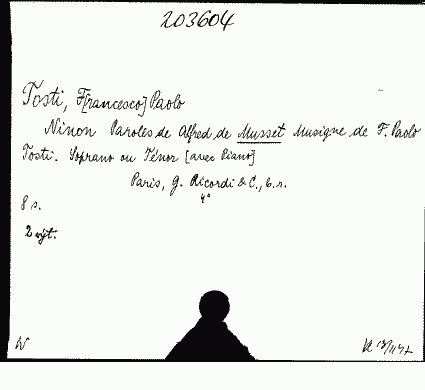 203604
Tosti, F[rancesco] Paolo
Ninon Paroles de Alfred de Musset Musique de F. Paolo
Tosti. Soprano ou Ténor [avec Piano]
Paris, G. Ricordi & C., b.r.
4°
8 s.
2 egz.
W